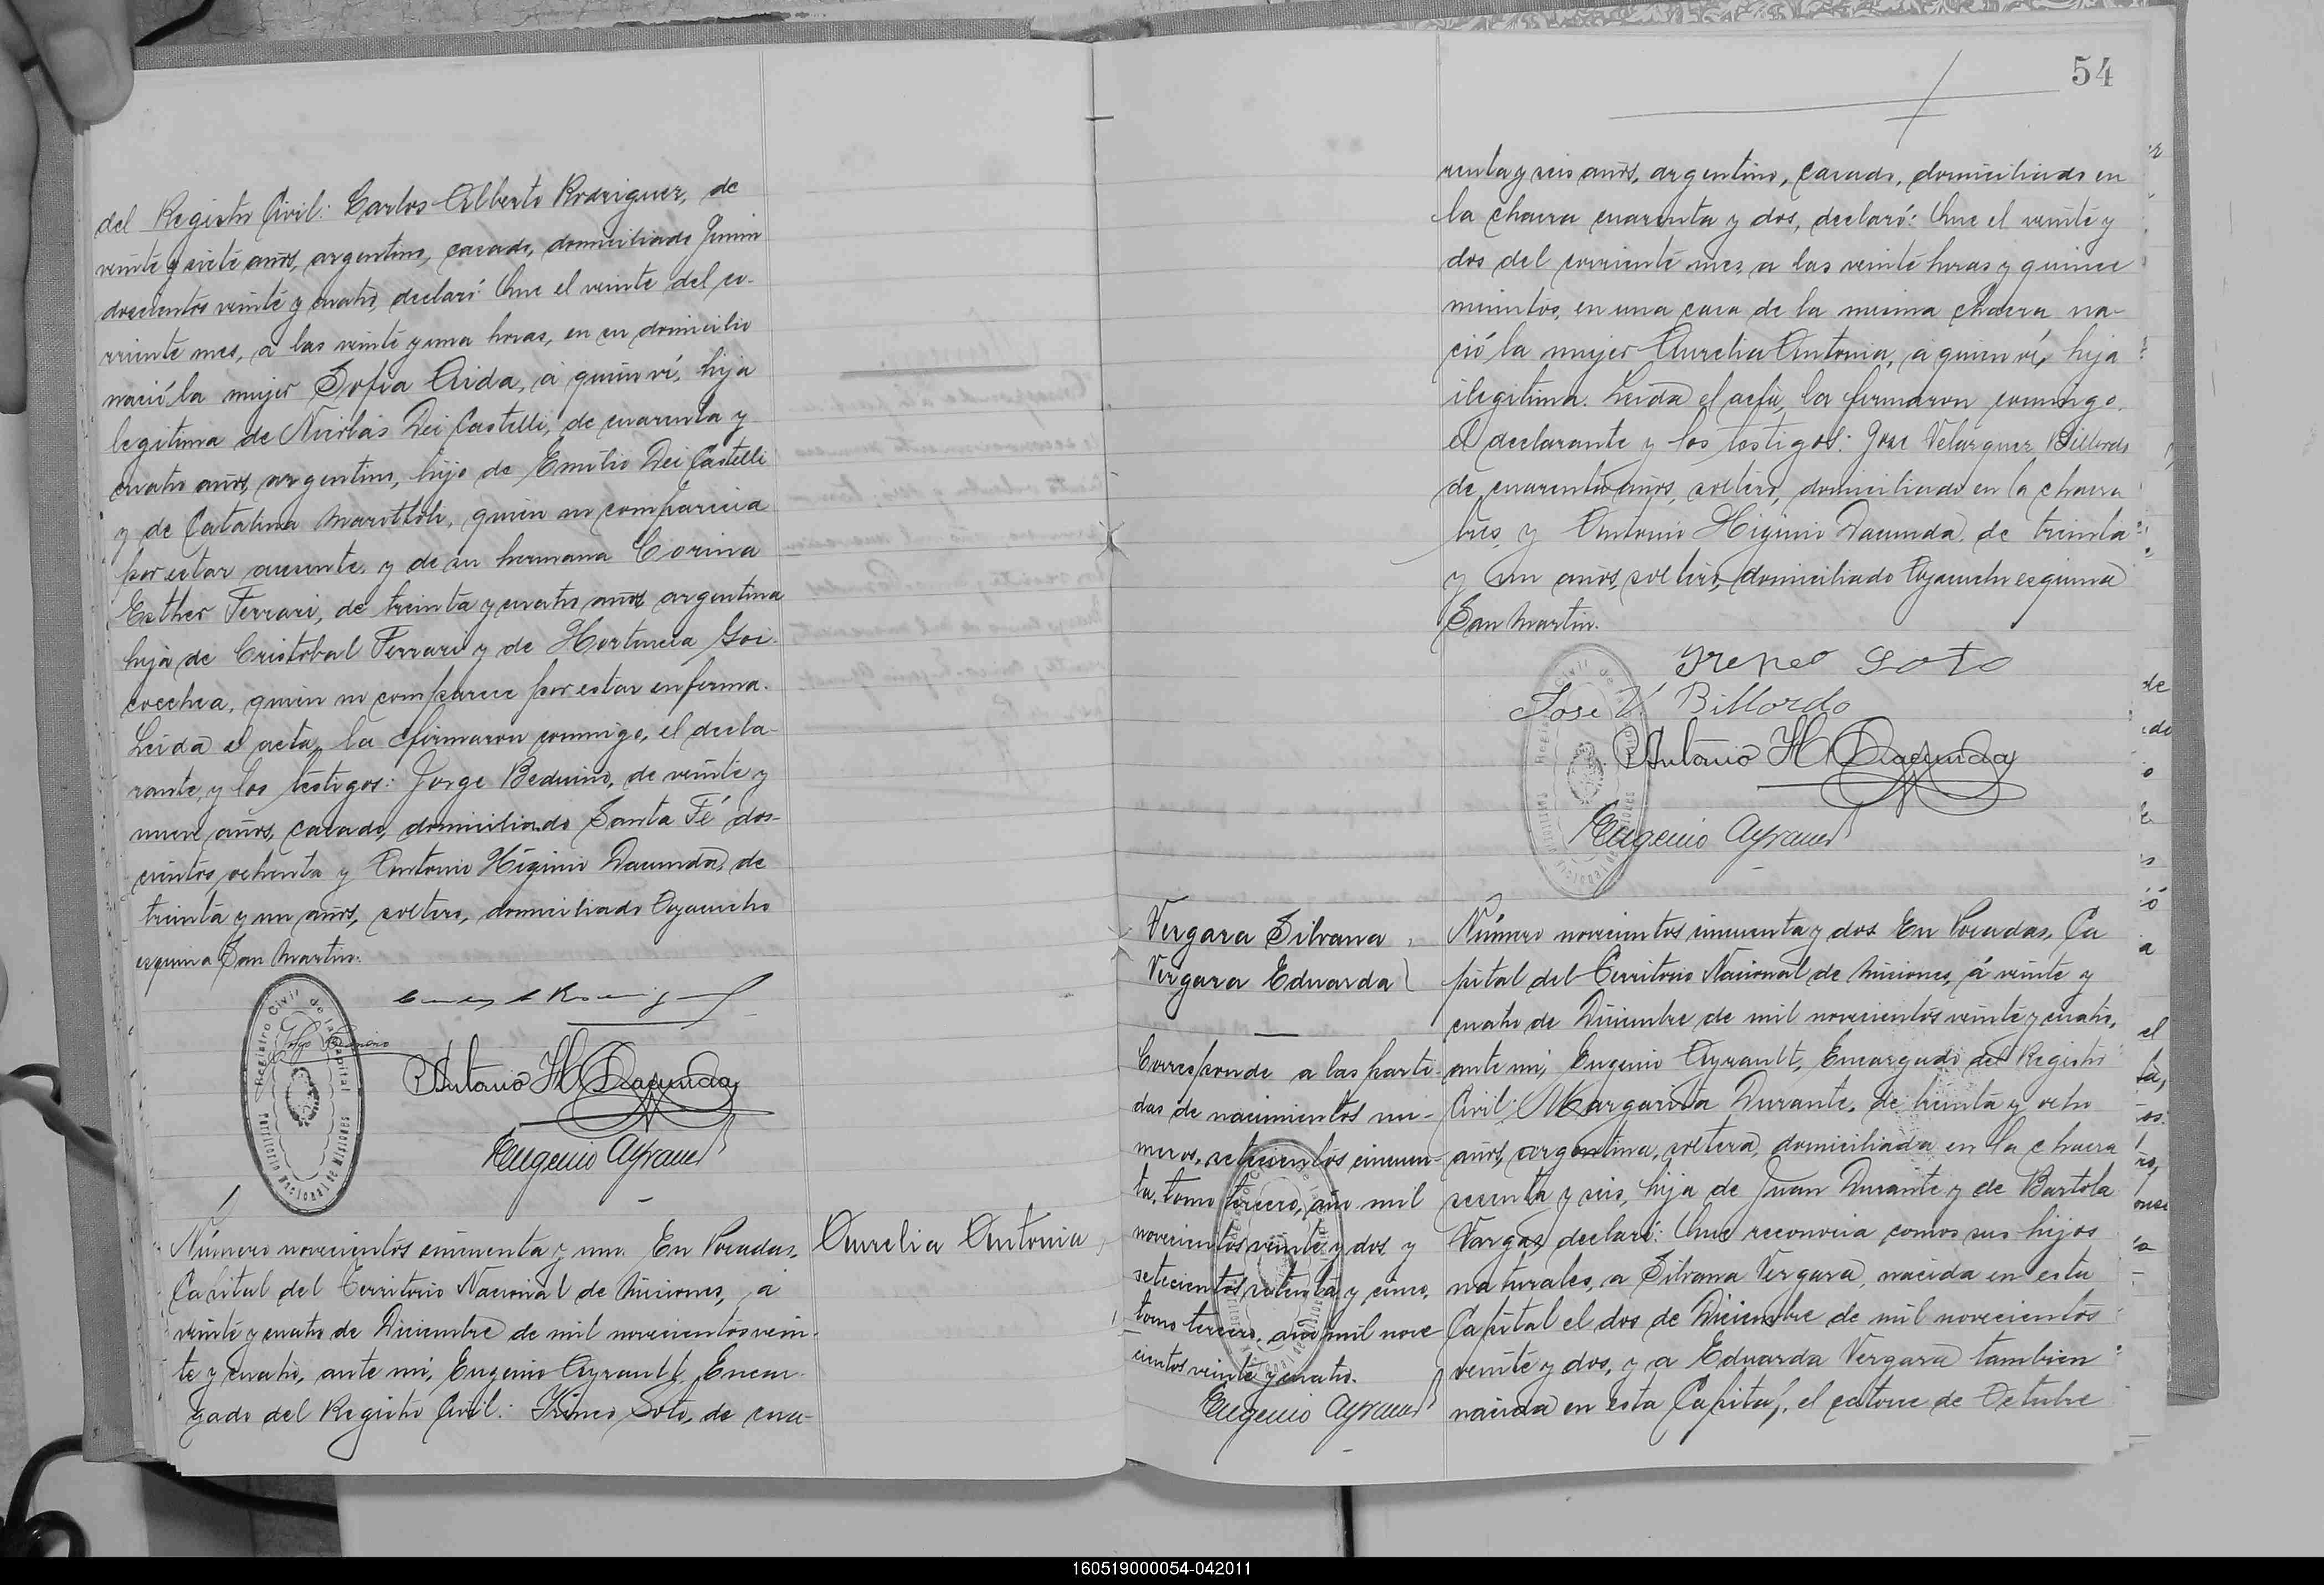 del Registro Civil: Carlos Alberto Rodriguez, de
veinte y siete años, argentino, casado, domiciliado Junin
doscientos veinte y cuatro, declaró: Que el veinte del co-
rriente mes, a las veinte y una horas, en su domicilio
nació la mujer Sofia Aida, a quien ví, hija
legitima de Nicolás Dei Castelli, de cuarenta y
cuatro años, argentino, hijo de Emilio Dei Castelli
y de Catalina, quien no comparecia
por estar ausente, y de su hermana Corina
Esther Ferrari, de treinta y cuatro años argentina
hija de Cristobal Ferrari y de Hortencia Goi-
coechea, quien no comparece por estar enferma.
Leida el acta, la firmaron conmigo, el decla-
rante, y los testigos: Jorge Beduino, de veinte y
nueve años, casado, domiciliado Santa Fé dos-
cientos ochenta y Antonio Higinio Dacunda, de
treinta y un años, soltero, domiciliado Ayacucho
esquina San Martin.
Registro Civil de la Capital
Territorio Nacional de Misiones
Antonio H. Dacunda
Eugenio Ayrault
Número novecientos cincuenta y uno. En Posadas,
Capital del Territorio Nacional de Misiones, a
veinte y cuatro de Diciembre de mil novecientos vein-
te y cuatro, ante mi, Eugenio Ayrault, Encar-
gado del Registro Civil: Irineo Soto, de cua-
Aurelia Antonia
54
renta y seis años, argentino, casado, domiciliado en
la chacra cuarenta y dos, declaró: Que el veinte y
dos del corriente mes, a las veinte horas y quince
minutos, en una casa de la misma chacra na-
ció la mujer Aurelia Antonia, a quien ví, hija
ilegitima. Leida el acta, la firmaron conmigo,
el declarante y los testigos: Jose Velazquez Billordo
de cuarenta años, soltero, domiciliado en la chacra
tres, y Antonio Higinio Dacunda, de treinta
y un años, soltero, domiciliado Ayacucho esquina
San Martin.
Ireneo Soto
Jose V. Billordo
Antonio H. Dacunda
Eugenio Ayrault
Vergara Silvana
Vergara Eduarda
Corresponde a las parti-
das de nacimientos nu-
meros, setecientos cincuen-
ta, tomo tercero, año mil
novecientos veinte y dos y
setecientos setenta y cinco,
tomo tercero, año mil nove-
cientos veinte y cuatro.
Eugenio Ayrault
Número novecientos cincuenta y dos En Posadas, Ca
pital del Territorio Nacional de Misiones, á veinte y
cuatro de Diciembre de mil novecientos veinte y cuatro,
ante mi, Eugenio Ayrault, Encargado del Registro
Civil: Margarita Durante, de treinta y ocho
años, argentina, soltera, domiciliada en la chacra
sesenta y seis, hija de Juan Durante y de Bartola
Vargas declaró: Que reconocia como sus hijos
naturales, a Silvana Vergara, nacida en esta
Capital el dos de Diciembre de mil novecientos
veinte y dos, y a Eduarda Vergara tambien
nacida en esta Capital, el catorce de Octubre
160519000054-042011